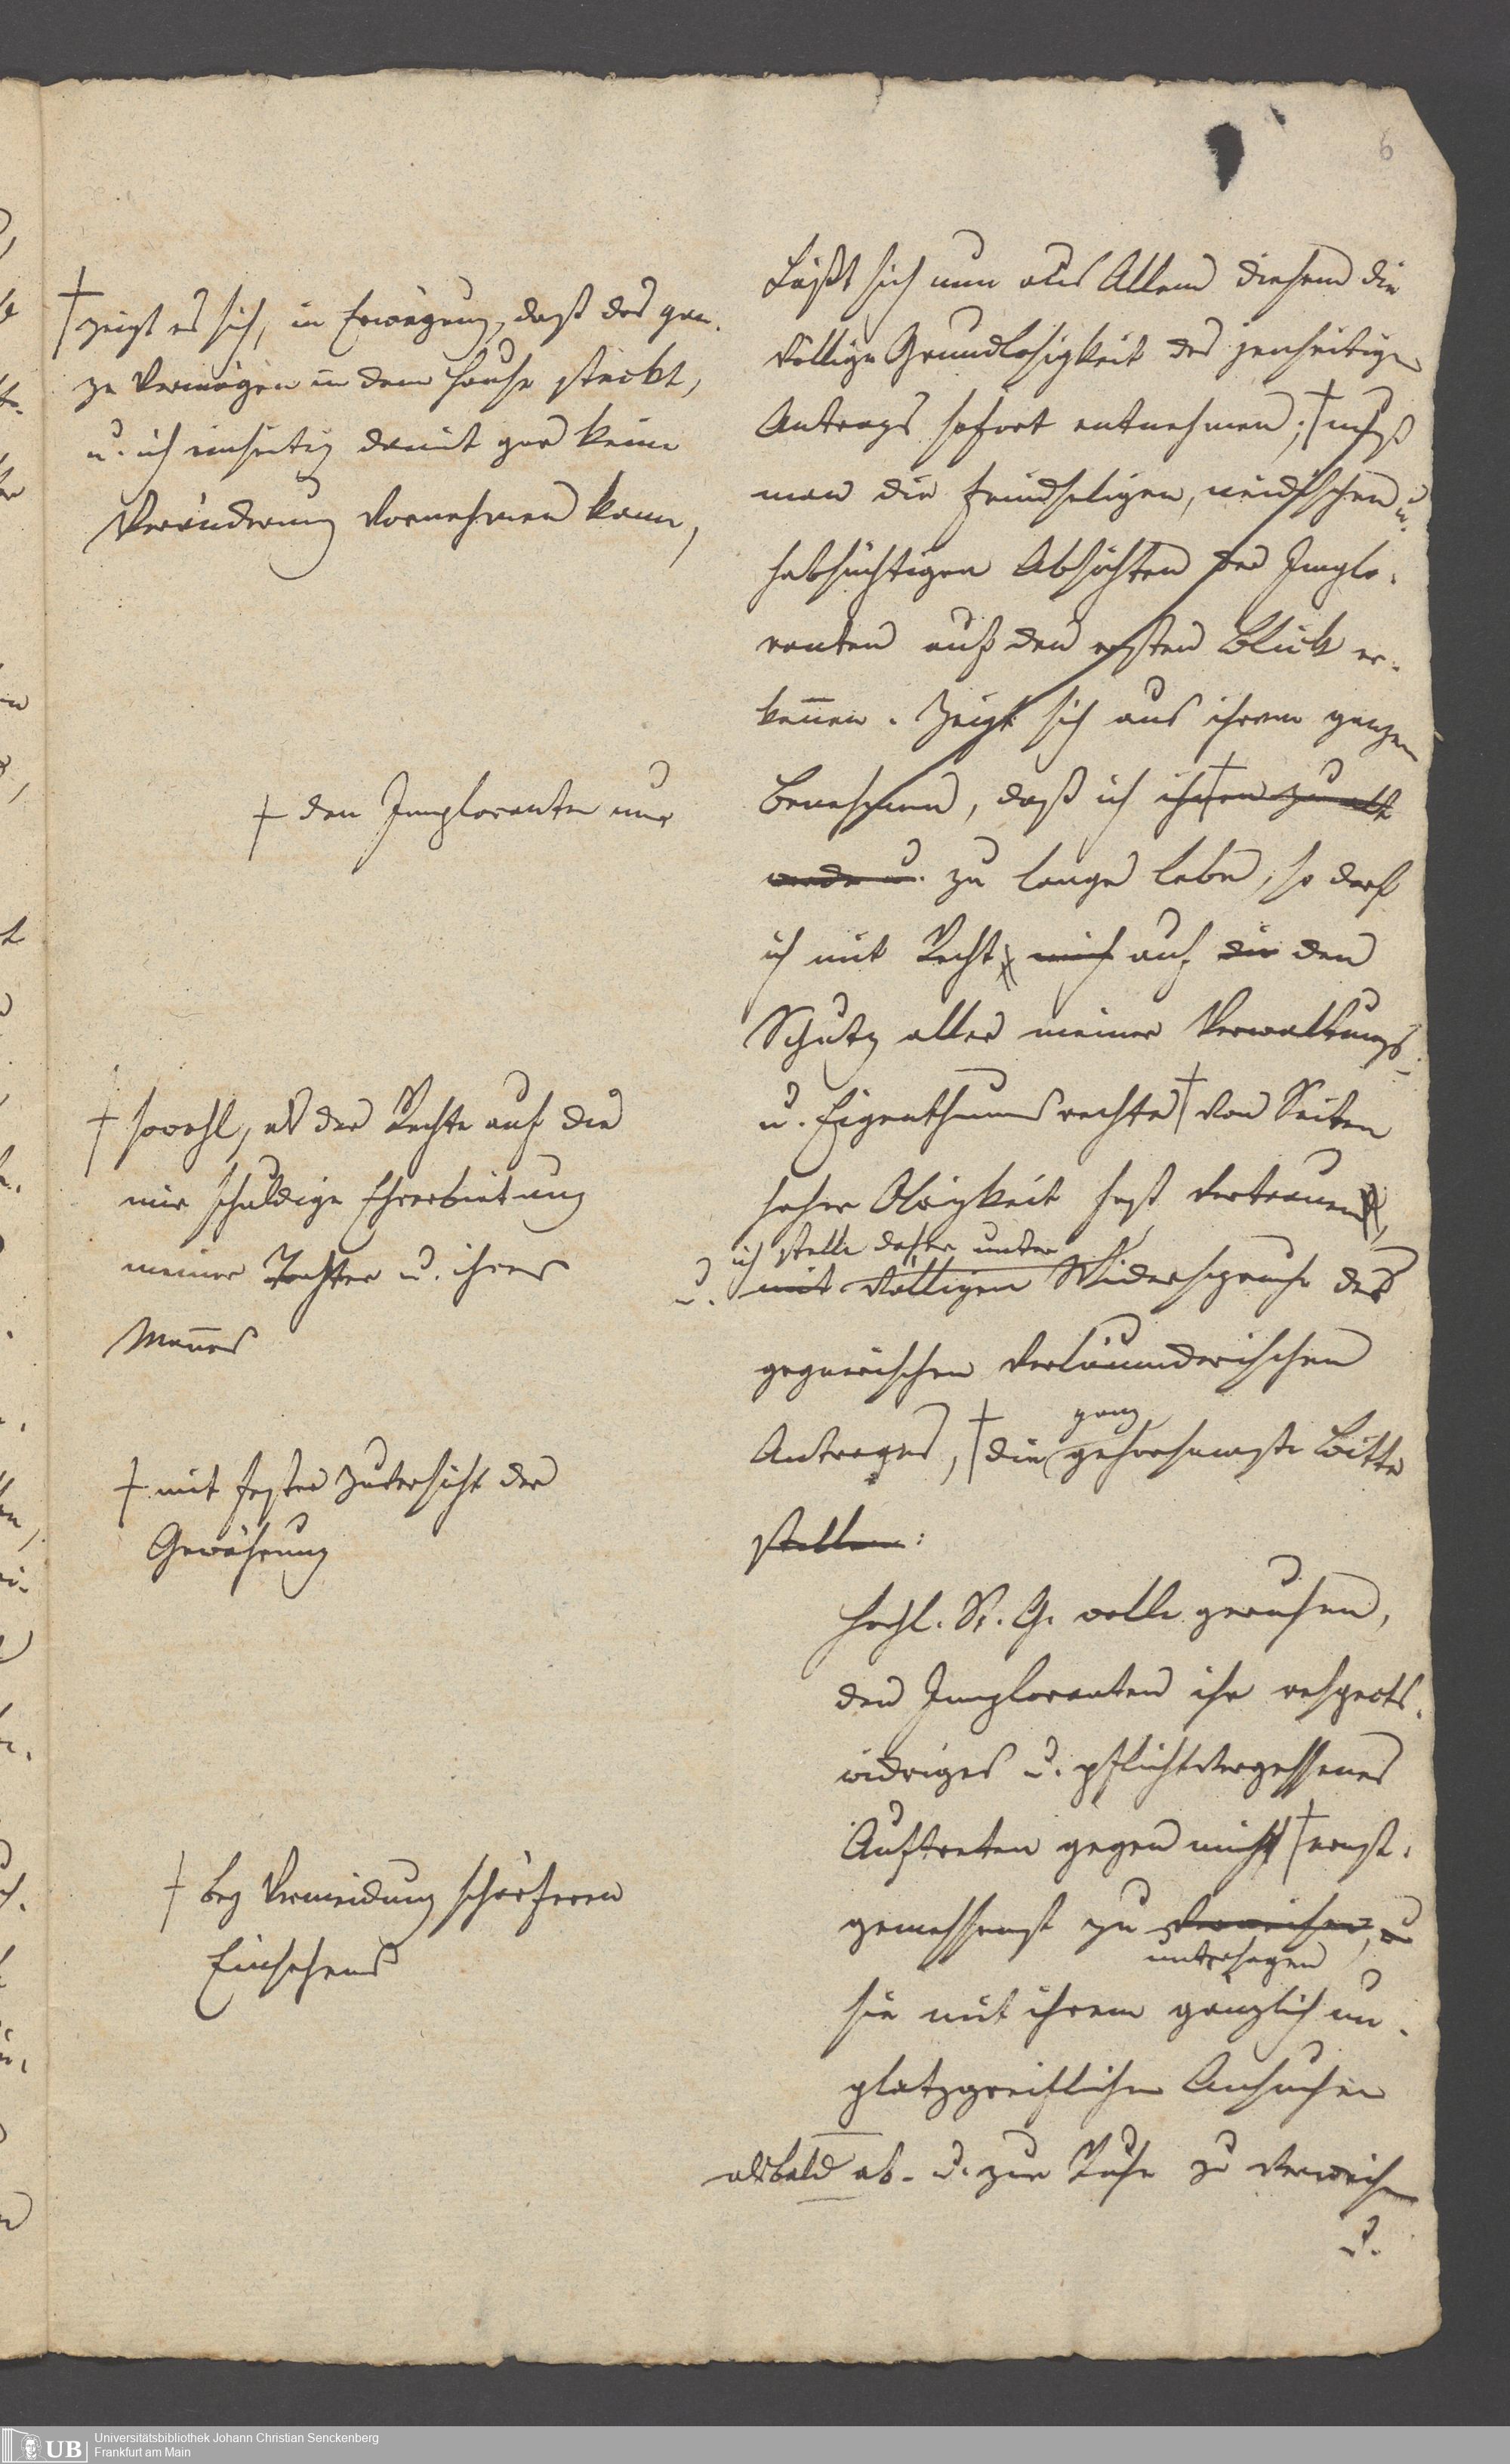 6
Läßt sich nun aus Allem diesem die
völlige Grundlosigkeit des jenseitigen
Antrags sofort entnehmen; † muß
man die feindseligen, neidischen u.
habsüchtigen Absichten der Implo-
ranten auf den ersten Blick er-
kennen. Zeigt sich aus ihrem ganzen
Benehmen, daß ich ihnen † zu alt
werde u. zu lange lebe, so darf
ich mit Recht mich auf die den
Schutz aller meiner Verwaltungs-
u. Eigenthumsrechte † von Seiten
hoher Obrigkeit fest vertrauen,
ich stelle daher unter
u. mit völligem Widerspruche des
gegnerischen verläumderischen
ganz
Antrages, † die gehorsamste Bitte
stellen:
Hochl. St. G. wolle geruhen,
den Imploranten ihr respects-
widriges u. pflichtvergessenes
Auftreten gegen mich † ernst-
gemessenst zu verweisen, u
untersagen
sie mit ihrem gänzlich un-
platzgreiflichen Ansuchen
alsbald ab- u. zur Ruhe zu verweisen
u.
† zeigt es sich, in Erwägung, daß das gan-
ze Vermögen in dem Hause steckt,
u. ich einseitig damit gar keine
Veränderung vornehmen kann,
† den Imploranten nur
† sowohl, als der Rechte auf die
mir schuldige Ehrerbietung
meiner Tochter u. ihres
Mannes
† mit fester Zuversicht der
Gewährung
† bey Vermeidung schärferen
Einsehens
UB
Universitätsbibliothek Johann Christian Senckenberg
Frankfurt am Main